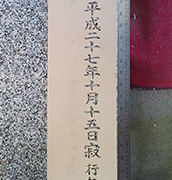 平成二十七年十月十五日寂 行